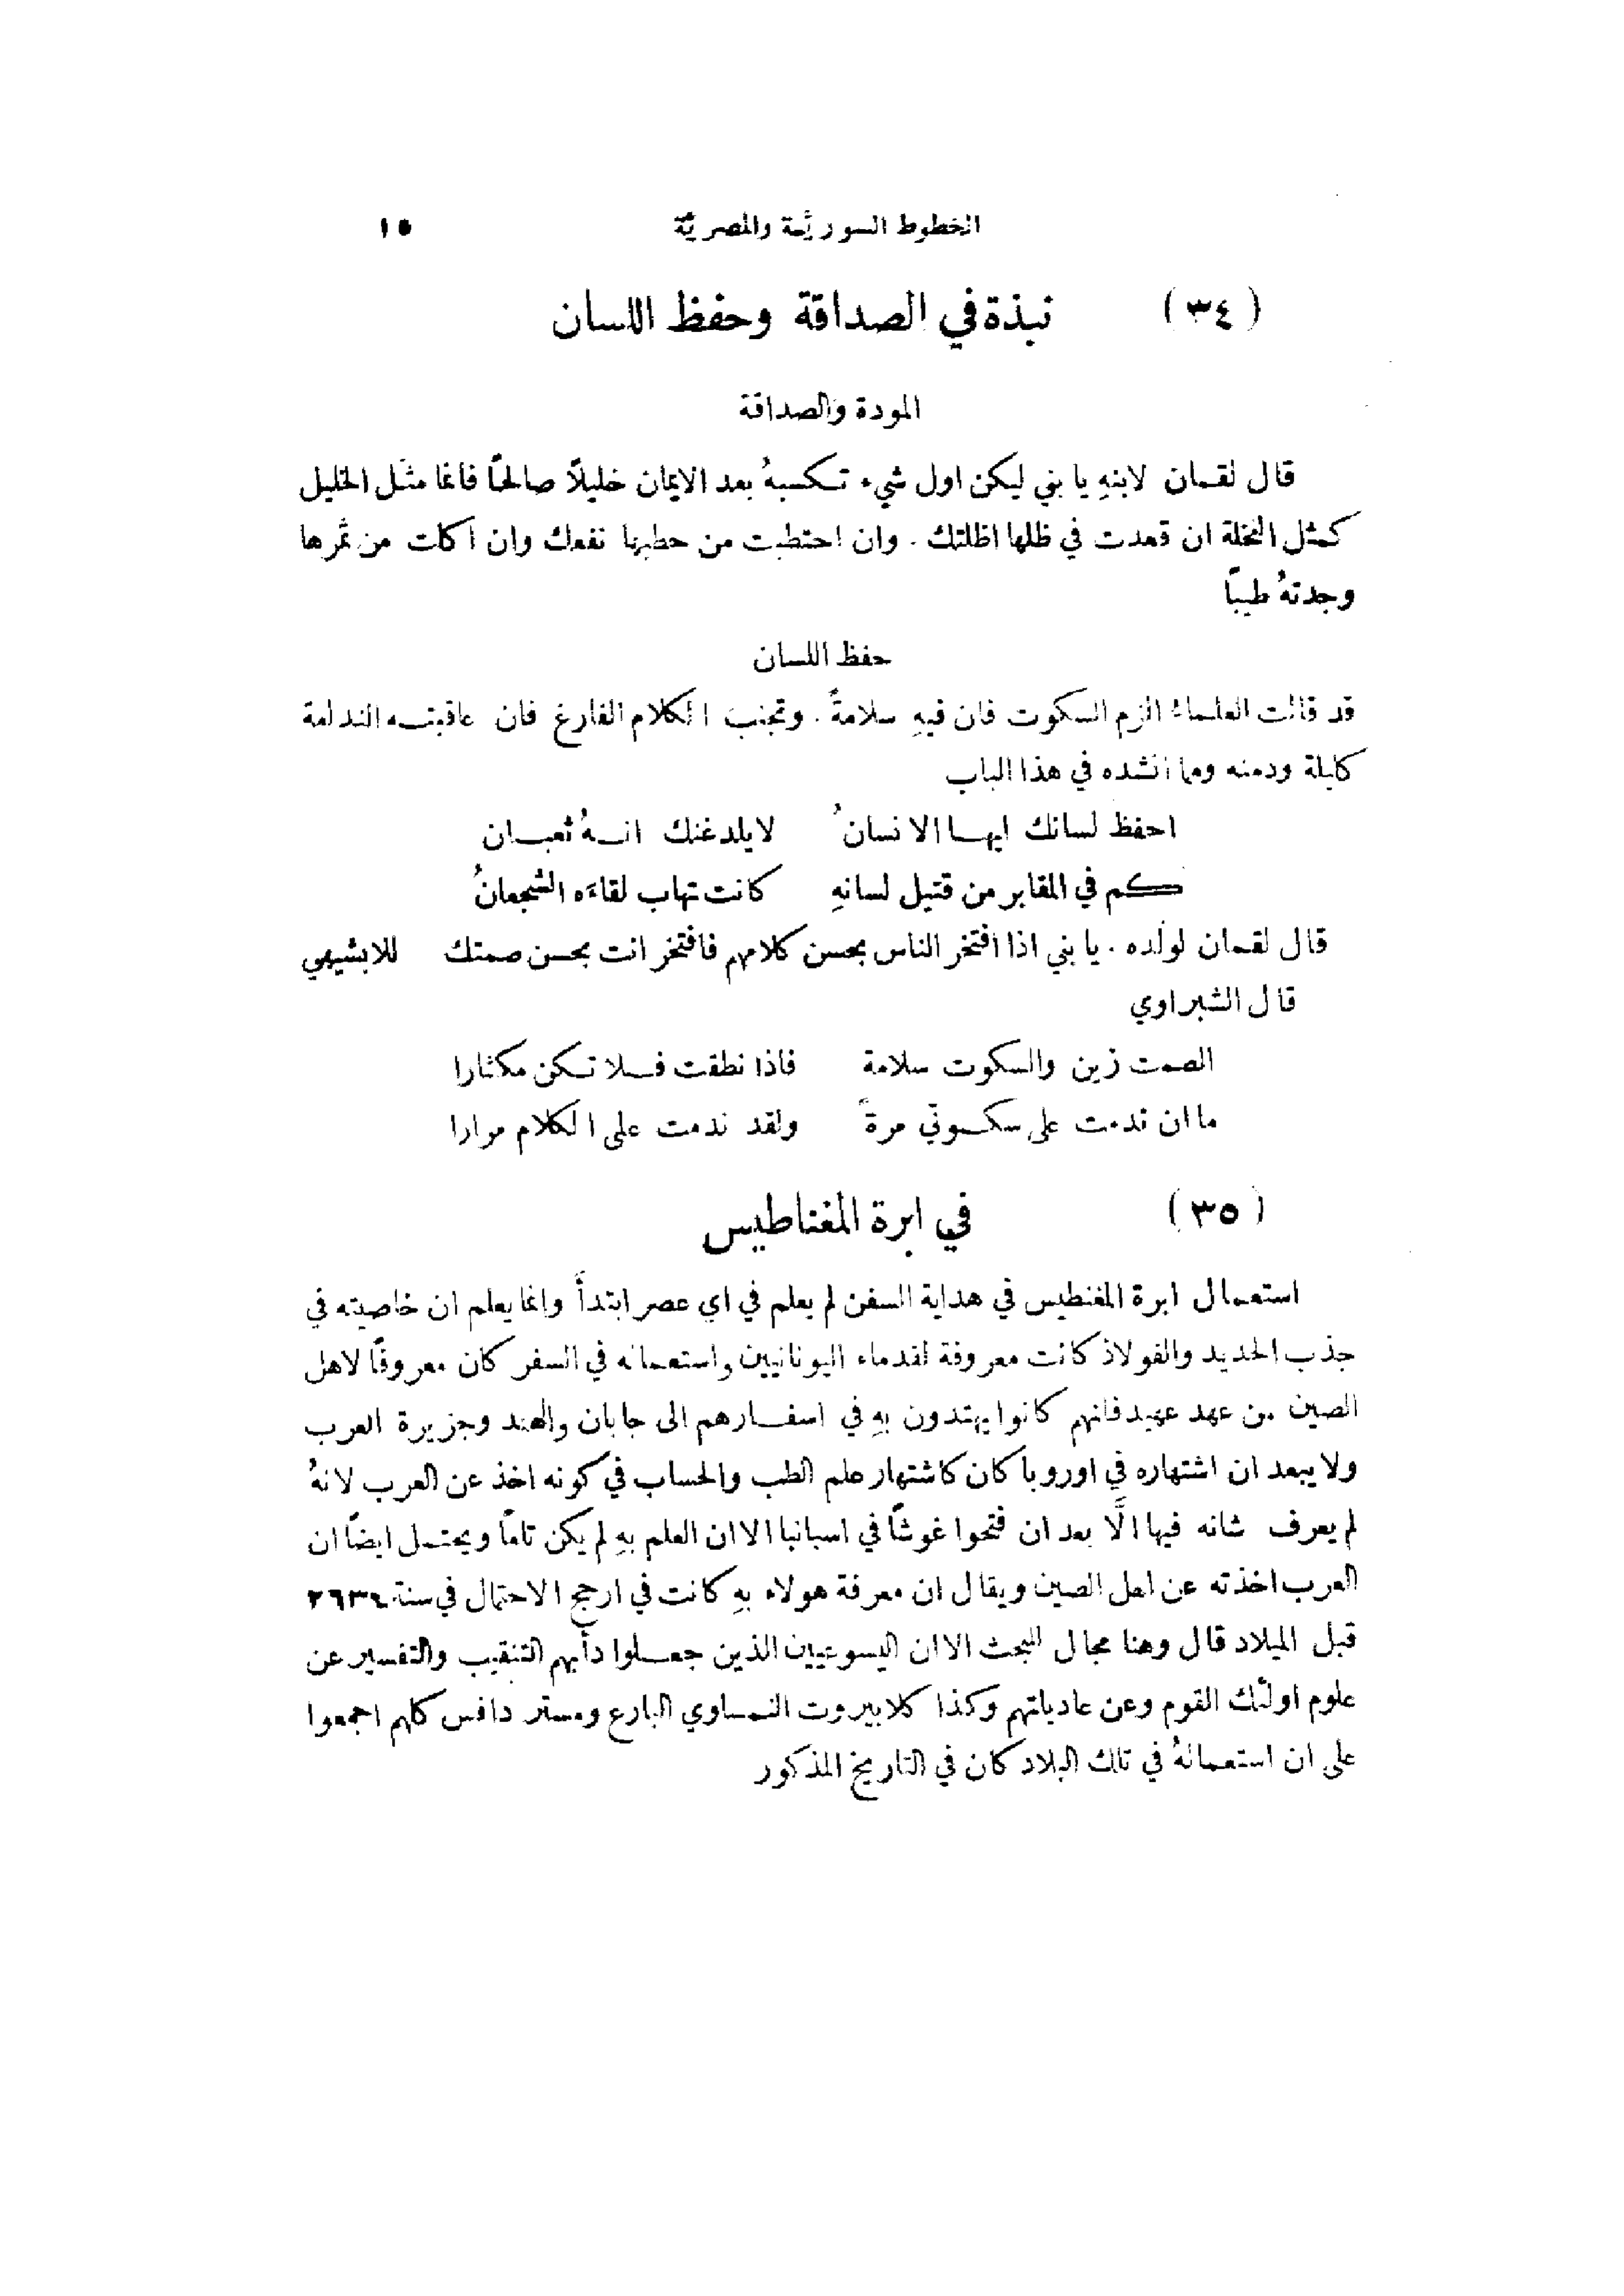 الخطوط السوريَّة والمصريَّة ١٥
(٣٤) نبذة في الصداقة وحفظ اللسان
المودة والصداقة
قال لقمان لابنهِ يا بني ليكن اول شيء تكسبهُ بعد الايمان خليلاً صالحًا فانما مثل الخليل
كمثل النخلة ان قعدت في ظلها اظلتك . وان احتطبت من حطبها نفعك وان اكلت من ثمرها
وجدتهُ طيبًا
حفظ اللسان
قد قالت العلماءُ الزم السكوت فان فيهِ سلامةً . وتجنب الكلام الفارغ فان عاقبته الندامة
كليلة ودمنه ومما انشده في هذا الباب
احفظ لسانك ايها الانسانُ لا يلدغنك انهُ ثعبان
كم في المقابر من قتيل لسانهِ كانت تهاب لقاءه الشجعانُ
قال لقمان لولده . يا بني اذا افتخر الناس بحسن كلامهم فافتخر انت بحسن صمتك للابشيهي
قال الشبراوي
الصمت زين والسكوت سلامة فاذا نطقت فلا تكن مكثارا
ما ان ندمت على سكوتي مرةً ولقد ندمت على الكلام مرارا
(٣٥) في ابرة المغناطيس
استعمال ابرة المغنطيس في هداية السفن لم يعلم في اي عصر ابتدأَ وانما يعلم ان خاصيته في
جذب الحديد والفولاذ كانت معروفة لقدماء اليونانيين واستعماله في السفر كان معروفًا لاهل
الصين من عهد عهيد فانهم كانوا يهتدون بهِ في اسفارهم الى جابان والهند وجزيرة العرب
ولا يبعد ان اشتهاره في اوروبا كان كاشتهار علم الطب والحساب في كونه اخذ عن العرب لانهُ
لم يعرف شانه فيها الَّا بعد ان فتحوا غوثًا في اسبانيا الا ان العلم بهِ لم يكن تامًا ويحتمل ايضًا ان
العرب اخذته عن اهل الصين ويقال ان معرفة هولاء بهِ كانت في ارجح الاحتمال في سنة ٢٦٣٤
قبل الميلاد قال وهنا مجال للبحث الا ان اليسوعيين الذين جعلوا دأبهم التنقيب والتفسير عن
علوم اولئك القوم وعن عادياتهم وكذا كلابيروت النمساوي البارع ومستر دافس كلهم اجمعوا
على ان استعمالهُ في تلك البلاد كان في التاريخ المذكور